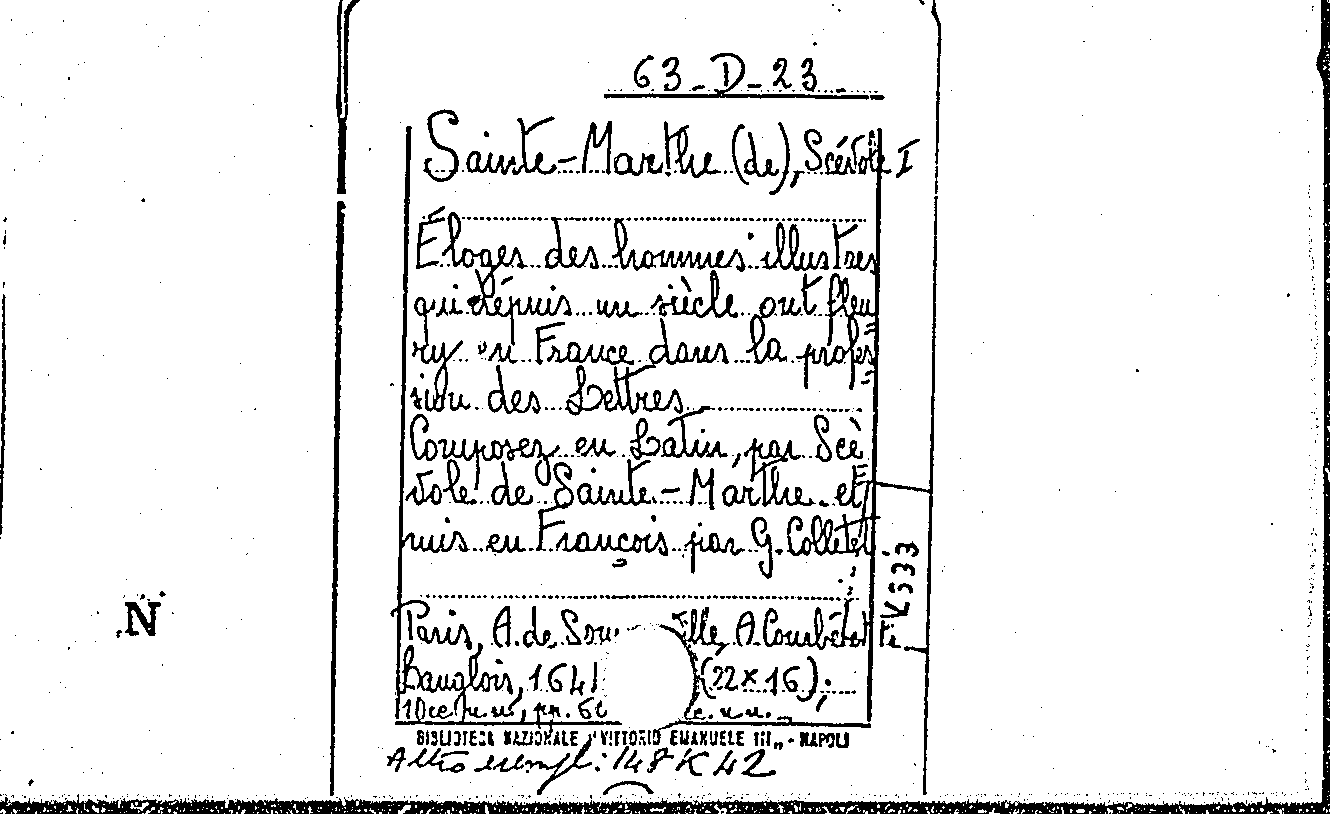 63-D-23
Sainte-Marthe (de), Scévole I
Éloges des hommes illustres
qui dépuis un siècle ont fleu
ry en France dans la profes
sion des Lettres
Composez en Latin, par Scè
vole de Sainte-Marthe et
mis en François par G. Colletet
Paris, A. de ille, A. Courbé et
Langlois, 1641 (22×16);
pp.
BIBLIOTECA NAZIONALE "VITTORIO EMANUELE III„ - NAPOLI
Altro esempl: 148 K 42
N